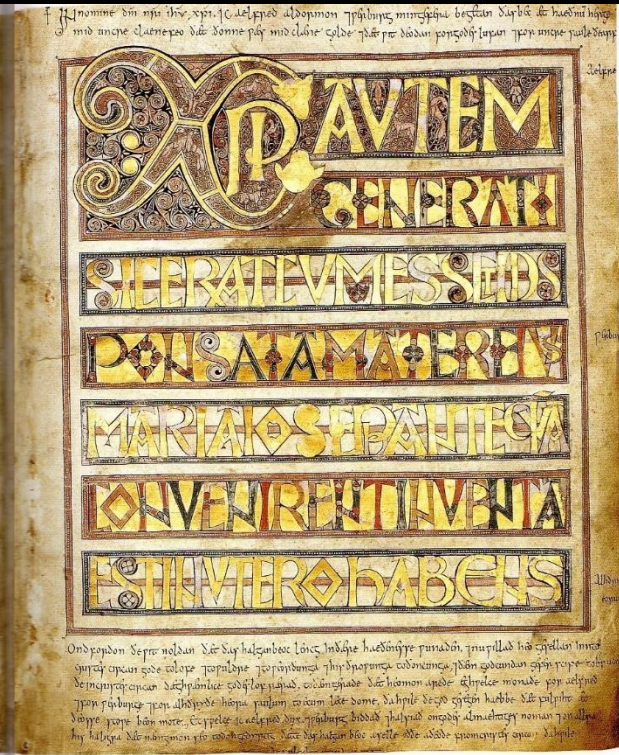 + In nomine dñi nri ihu xpi. Ic aelfred aldormon ⁊ ƿerburg min gefera begetan ðas bec æt haeðnū herge
mid uncre claene feo ðæt ðonne ƿæs mid claene golde ⁊ ðæt ƿit deodan for godes lufan ⁊ for uncre saule ðearfe
XPI AVTEM
GENERATI
SIC ERAT CVM ESSET DIS
PONSATA MATER EIVS
MARIA IOSEPH ANTEQVĀ
CONVENIRENT INVENTA
EST IN VTERO HABENS
Ond forðon ðe ƿit noldan ðæt ðas halgan beoc lencg in ðære haeðenesse ƿunaden, ⁊ nu ƿillað heo gesellan inn to
cristes circan gode to lofe ⁊ to ƿuldre ⁊ to ƿeorðunga ⁊ his ðroƿunga to ðoncunga, ⁊ ðæm godcundan geferscipe to
ðe in cristes circan dæghƿæmlice godes lof rærað, to ðæm gerade ðæt heo mon arede eghƿelce monaðe for aelfred
⁊ for ƿerburge ⁊ for alhðryðe heora saulum to ecum lecedome, ða hƿile ðe god gesegen haebbe ðæt fulƿiht æt
ðeosse stoƿe beon mote. Ec sƿelce ic aelfred dux ⁊ ƿerburg biddað ⁊ halsiað on godes almaehtiges noman ⁊ on allra
his haligra ðæt nænig mon seo to ðon gedyrstig ðætte ðas halgan beoc aselle oððe aðeode from cristes circan ða hƿile
Aelfre
ƿerbur